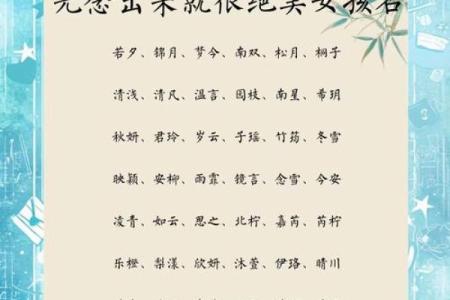 光念出来就很绝美女孩名
若夕、锦月、梦今、南双、松月、桐子
清浅、清凡、温言、园枝、南星、希玥
秋妍、君玲、岁云、子瑶、竹筠、冬雪
映颖、安柳、雨霏、镜言、念雪、今安
凌青、如云、思之、北柠、嘉芮、芮柠
乐橙、梨漾、欣妍、沐萱、伊珞、晴川